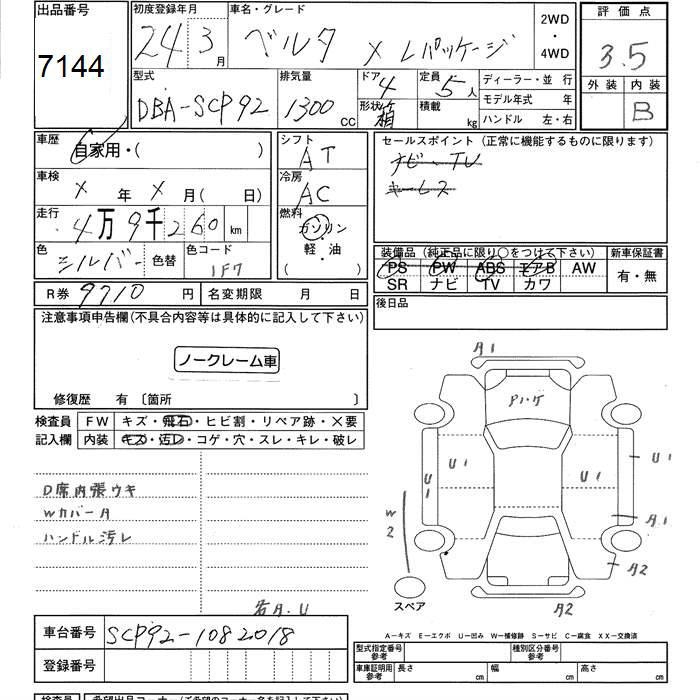 出品番号
7144
初度登録年月
24 3月
車名・グレード
ベルタ X Lパッケージ
2WD
・
4WD
評価点
3.5
外装 内装
B
型式
DBA-SCP92
排気量
1300 CC
ドア
4
形状
箱
定員
5人
積載
kg
ディーラー・並 行
モデル年式 年
ハンドル 左・右
車歴
自家用・( )
車検
X 年 X 月( 日)
走行
4万9千260 km
色
シルバー 色替
色コード
1F7
シフト
AT
冷房
AC
燃料
ガソリン
軽・油
( )
セールスポイント (正常に機能するものに限ります)
ナビ・TV
キーレス
装備品 (純正品に限り○をつけて下さい)
PS PW ABS エアB AW
SR ナビ TV カワ
新車保証書
有・無
後日品
R券 9710 円
名変期限 月 日
注意事項申告欄(不具合内容等は具体的に記入して下さい)
ノークレーム車
修復歴 有 〔箇所 〕
検査員
記入欄
FW キズ・飛石・ヒビ割・リペア跡・X要
内装 キズ・汚レ・コゲ・穴・スレ・キレ・破レ
D席内張ウキ
WカバーA
ハンドル汚レ
若A.U
A1
U1
U1
U1
U1
A1
W2
A2
A2
スペア
A―キズ E―エクボ U―凹み W―補修跡 S―サビ C―腐食 XX―交換済
車台番号
SCP92-1082018
登録番号
型式指定番号
参考
種別区分番号
参考
車庫証明用
参考
長さ cm
幅 cm
高さ cm